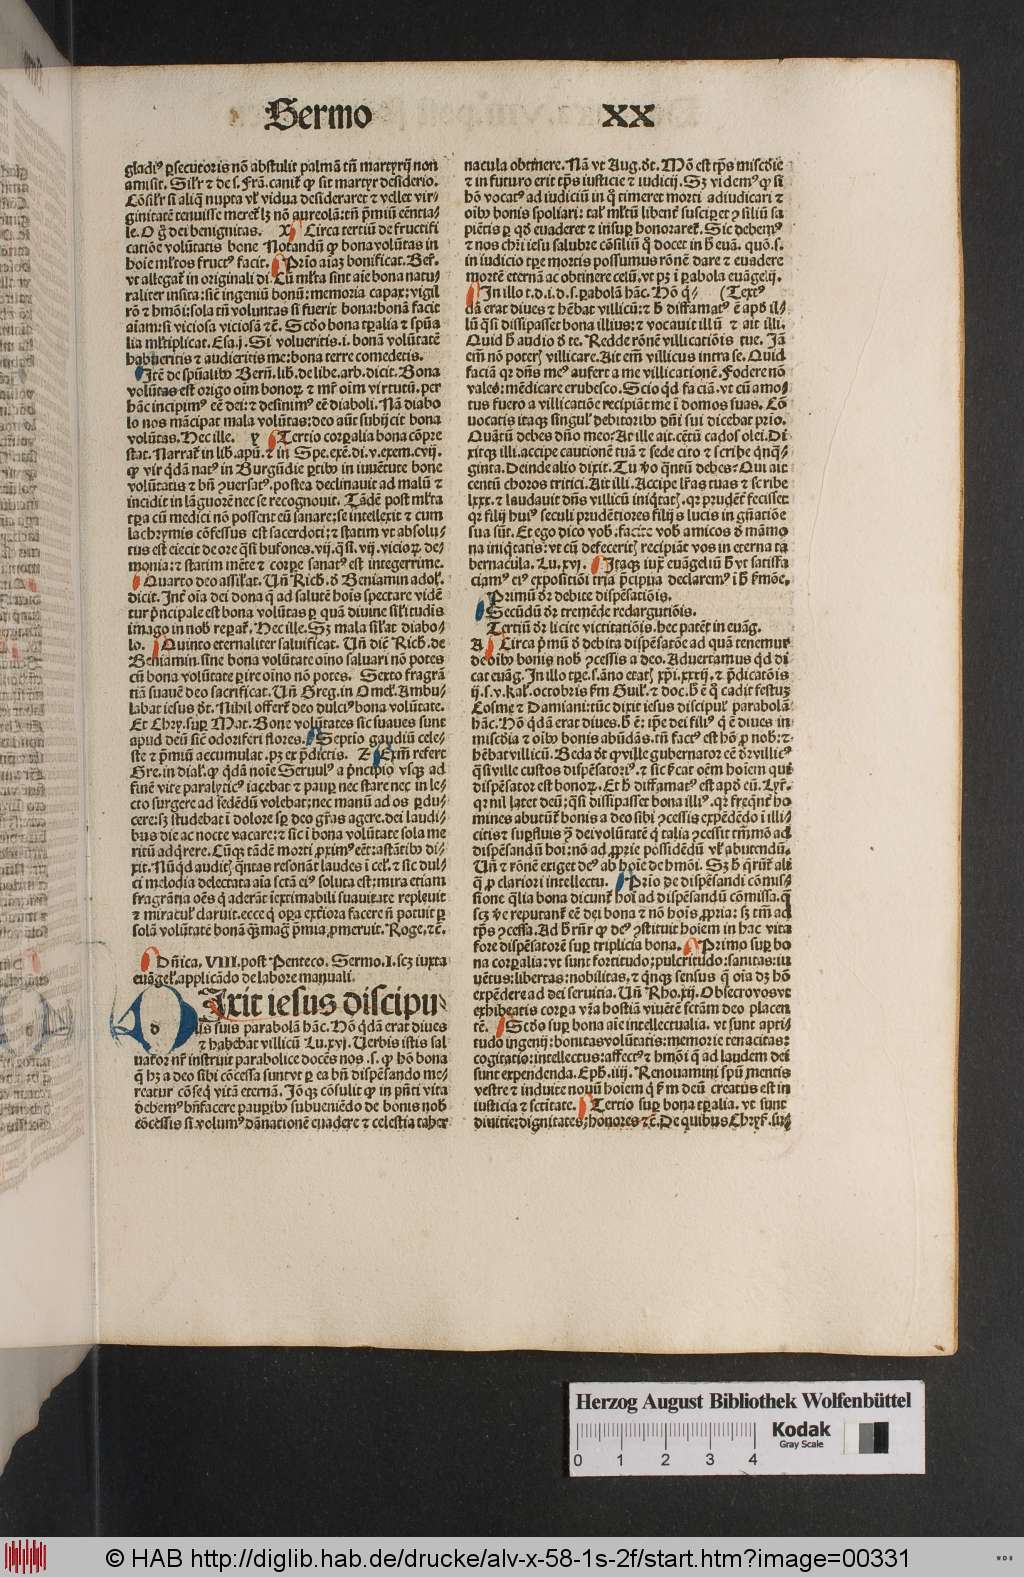 Sermo XX
gladiꝰ ꝑsecutoris nō abstulit palmā tn̄ martyrij non
amisit. Sil'r ⁊ de s. Frā. canit᷑ ꝙ sit martyr desiderio.
Cōsil'r si aliq̄ nupta vl' vidua desideraret ⁊ vellet vir-
ginitatē tenuisse meret᷑ lꝫ nō aureolā: tn̄ p̄miū eēntia-
le. O ḡ dei benignitas. X Circa tertiū de fructifi
catiōe volūtatis bone Notandū ꝙ bona volūtas in
hoīe ml'tos fructꝰ facit. Prīo aīaꝫ bonificat. Ber.
vt allegat᷑ in originali di. Cū ml'ta sint aīe bona natu-
raliter insita: sic̄ ingeniū bonū: memoria capax: vigil
rō ⁊ hmōi: sola tn̄ voluntas si fuerit bona: bonā facit
aīam: si viciosa viciosā ⁊c̄. Scd̄o bona tꝑalia ⁊ spūa
lia ml'tiplicat. Esa. j. Si volueritis .i. bonā volūtatē
habueritis ⁊ audieritis me: bona terre comedetis.
Itē de spūalibꝰ Bern̄. lib. de libe. arb. dicit. Bona
volūtas est origo oīm bonoꝝ ⁊ mr̄ oīm virtutū. per
hāc incipimꝰ eē dei: ⁊ desinimꝰ eē diaboli. Nā diabo
lo nos mācipat mala volūtas: deo aūt subijcit bona
volūtas. Hec ille. Y Tertio corꝑalia bona cōpre
stat. Narrat᷑ in lib. apū. ⁊ in Spe. exē. di. v. exem. cvij.
ꝙ vir qdā natꝰ in Burgūdie ꝑtibꝰ in iuvētute bone
volūtatis ⁊ bn̄ ꝯuersatꝰ. postea declinauit ad malū ⁊
incidit in lāguorē nec se recognouit. Tādē post ml'ta
tꝑa cū medici nō possent eū sanare: se intellexit ⁊ cum
lachrymis cōfessus est sacerdoti: ⁊ statim vt absolu-
tus est eiecit de ore q̄si bufones .vij. q̄si .vij. vicioꝝ de-
monia: ⁊ statim mēte ⁊ corꝑe sanatꝰ est integerrime.
Quarto deo assil'at. Un̄ Rich. d̄ Beniamin adol'.
dicit. Int᷑ oīa dei dona q̄ ad salutē hoīs spectare vidē
tur p̄ncipale est bona volūtas ꝑ quā diuine sil'itudis
imago in nob̄ reꝑat᷑. Hec ille. Sꝫ mala sil'at diabo-
lo. Quinto eternaliter saluificat. Un̄ dic̄ Rich. de
Beniamin. sine bona volūtate oīno saluari nō potes
cū bona volūtate ꝑire oīno nō potes. Sexto fragrā
tiā suauē deo sacrificat. Un̄ Greg. in Omel'. Ambu-
labat iesus d̄t. Nihil offert᷑ deo dulciꝰ bona volūtate.
Et Chry. suꝑ Mat. Bone volūtates sic suaves sunt
apud deū sic̄ odoriferi flores. Septio gaudiū cele-
ste ⁊ p̄miū accumulat. pꝫ ex p̄dictis. Z Exm̄ refert
Gre. in dial'. ꝙ qdā noīe Seruulꝰ a p̄ncipio vsqꝫ ad
finē vite paralyticꝰ iacebat ⁊ pauꝑ nec stare nec in le-
cto surgere ad sedēdū volebat; nec manū ad os ꝑdu-
cere: sꝫ studebat ī dolore suꝑ deo gr̄as agere. dei laudi-
bus die ac nocte vacare: ⁊ sic ī bona volūtate sola me
ritū adqrere. Cūqꝫ tādē morti ꝓximꝰ eēt: astātibꝰ di-
xit. Nūqd auditꝭ q̄ntas resonāt laudes ī cel'. ⁊ sic dul-
ci melodia delectata aīa sctā eiꝰ soluta est: mira etiam
fragrātia oēs q̄ aderāt īextimabili suauitate repleuit
⁊ miracul' claruit. ecce q̄ oꝑa exteriora facere n̄ potuit ꝑ
solā volūtatē bonā qꝫ mag p̄mia ꝓmeruit. Roge. ⁊c̄.
Dn̄ica. VIII. post Penteco. Sermo. I. scꝫ iuxta
euāgel'. applicādo de labore manuali.
DIxit iesus discipu-
lis suis parabolā hāc. Hō qdā erat diues
⁊ habebat villicū Lu. xvj. Verbis istis sal
uator nr̄ instruit parabolice docēs nos .s. ꝙ hō bona
q̄ hꝫ a deo sibi cōcessa sunt vt ꝑ ea bn̄ dispēsando me-
reatur cōseq̄ vitā eternā. Jōqꝫ cōsulit ꝙ in p̄nti vita
debemꝰ bn̄facere pauꝑibꝰ subueniēdo de bonis nob̄
cōcessis si volumꝰ dānationē euadere ⁊ celestia taber
nacula obtinere. Nā vt Aug. d̄t. Mō est tp̄s misc̄die
⁊ in futuro erit tp̄s iusticie ⁊ iudicij. Sꝫ videmꝰ ꝙ si
hō vocatꝰ ad iudiciū in q̄ timeret morti adiudicari ⁊
oībꝰ bonis spoliari: tal' ml'tū libent᷑ susciꝑet ꝯsiliū sa
piētis ꝑ qd̄ euaderet ⁊ insuꝑ honoraret᷑. Sic debemꝰ
⁊ nos chr̄i iesu salubre cōsiliū q̄ docet in h̄ euā. quō .s.
in iudicio tꝑe mortis possumus rōnē dare ⁊ euadere
mortē eternā ac obtinere celū. vt pꝫ ī ꝑabola euāgelij.
In illo t. d. i. d. s. ꝑabolā hāc. Hō q- (Textꝰ
dā erat diues ⁊ hēbat villicū: ⁊ h̄ diffamatꝰ ē apd̄ il-
lū q̄si dissipasset bona illius: ⁊ vocauit illū ⁊ ait illi.
Quid h̄ audio d̄ te. Redde rōnē villicatiōis tue. Jā
em̄ nō poterꝭ villicare. Ait em̄ villicus intra se. Quid
faciā qꝛ dn̄s meꝰ aufert a me villicationē. Fodere nō
valeo: mēdicare erubesco. Scio qd̄ faciā. vt cū amo-
tus fuero a villicatiōe recipiāt me ī domos suas. Cō
uocatis itaqꝫ singul' debitoribꝰ dn̄i sui dicebat prīo.
Quātū debes dn̄o meo? At ille ait. cētū cados olei. Di
xitqꝫ illi. accipe cautionē tuā ⁊ sede cito ⁊ scribe q̄nq̄-
ginta. Deinde alio dixit. Tu ꝟo q̄ntū debes? Qui ait
centū choros tritici. Ait illi. Accipe lr̄as tuas ⁊ scribe
lxxx. ⁊ laudauit dn̄s villicū iniq̄tatꝭ. qꝛ prudēt᷑ fecisset
qꝛ filij huiꝰ seculi prudētiores filijs lucis in gn̄atiōe
sua sūt. Et ego dico vob̄. facite vob̄ amicos d̄ māmo
na iniq̄tatis: vt cū defeceritꝭ recipiāt vos in eterna ta
bernacula. Lu. xvj. Itaqꝫ iux̄ euāgeliū h̄ vt satisfa
ciamꝰ eiꝰ expositiōi tria p̄cipua declaremꝰ ī h̄ s̄mōe.
Primū d̄r debite dispēsatiōis.
Secūdū d̄r tremēde redargutiōis.
Tertiū d̄r licite victitatiōis. hec patēt in euāg.
A Circa p̄mū s̄ d̄ debita dispēsatōe ad quā tenemur
de oībꝰ bonis nob̄ ꝯcessis a deo. Aduertamus qd̄ di
cat euāg. In illo tꝑe .s. āno etatꝭ xp̄i. xxxij. ⁊ p̄dicatōis
ij. s. v. kal'. octobris s̄m Guil'. ⁊ doc. h̄ ē q̄ cadit festuꝫ
Cosme ⁊ Damiani: tūc dixit iesus discipul' parabolā
hāc. Hō qdā erat diues. h̄ ē: ip̄e dei filiꝰ q̄ ē diues in
misc̄dia ⁊ oībꝰ bonis abūdās. tn̄ factꝰ est hō ꝓ nob̄: ⁊
hēbat villicū. Beda d̄t ꝙ ville gubernator eē d̄ꝫ villicꝰ
q̄si ville custos dispēsatoriꝰ. ⁊ sic s̄cat oēm hoīem qui
dispēsator est bonoꝝ. Et h̄ diffamatꝰ est apd̄ eū. Lyr᷑.
qꝛ nil latet deū; q̄si dissipasset bona illiꝰ. qꝛ freq̄nt᷑ ho
mines abutūt᷑ bonis a deo sibi ꝯcessis expēdēdo ī illi-
citis ⁊ suꝑfluis ꝯ̄ dei volūtatē q̄ talia ꝯcessit tm̄mō ad
dispēsandū hoī: nō ad ꝓprie possidēdū vl' abutendū.
Un̄ ⁊ rōnē exiget deꝰ ab hoīe de hmōi. Sꝫ h̄ q̄rūt᷑ alī
q̄ ꝓ clariori intellectu. Prīo de dispēsandi cōmis-
sione qlia bona dicunt᷑ hoī ad dispēsandū cōmissa. q̄
scꝫ ꝟe reputant᷑ eē dei bona ⁊ nō hoīs ꝓpria: sꝫ tm̄ ad
tp̄s ꝯcessa. Ad h̄ rn̄r ꝙ deꝰ ꝯstituit hoīem in hac vita
fore dispēsatorē suꝑ triplicia bona. Primo suꝑ bo
na corꝑalia: vt sunt fortitudo: pulcritudo: sanitas: iu
uētus: libertas: nobilitas. ⁊ q̄nqꝫ sensus q̄ oīa dꝫ hō
expēdere ad dei seruitia. Un̄ Rho. xij. Obsecro vos vt
exhibeatis corꝑa vr̄a hostiā viuētē sctām deo placen
tē. Scd̄o suꝑ bona aīe intellectualia. vt sunt apti-
tudo ingenij: bonitas volūtatis: memorie tenacitas:
cogitatio: intellectus: affectꝰ ⁊ hmōi q̄ ad laudem dei
sunt expendenda. Eph. iiij. Renouamini spū mentis
vestre ⁊ induite nouū hoiem q̄ s̄m deū creatus est in
iusticia ⁊ sctitate. Tertio suꝑ bona tꝑalia. vt sunt
diuitie: dignitates: honores ⁊c̄. De quibus Chryst. su-
Herzog August Bibliothek Wolfenbüttel
Kodak
Gray Scale
0 1 2 3 4
© HAB http://diglib.hab.de/drucke/alv-x-58-1s-2f/start.htm?image=00331